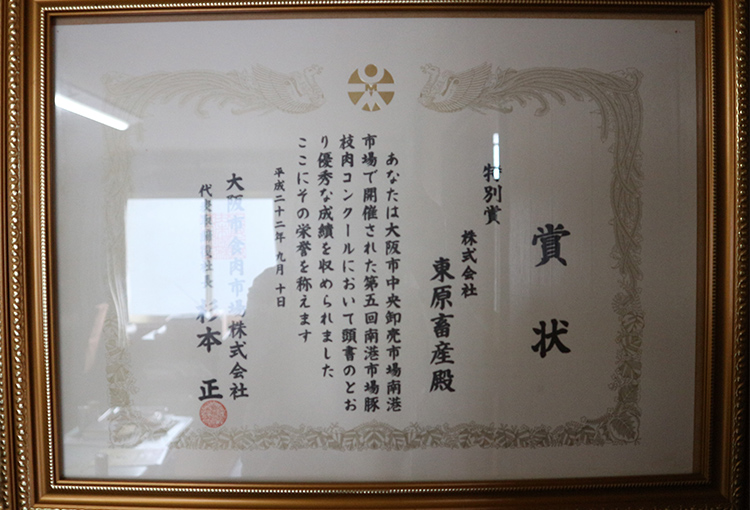 賞状
特別賞
株式会社
東原畜産殿
あなたは大阪市中央卸売市場南港
市場で開催された第五回南港市場豚
枝肉コンクールにおいて頭書のとお
り優秀な成績を収められました
ここにその栄誉を称えます
平成二十二年九月十日
大阪市食肉市場株式会社
代表取締役社長 杉本 正